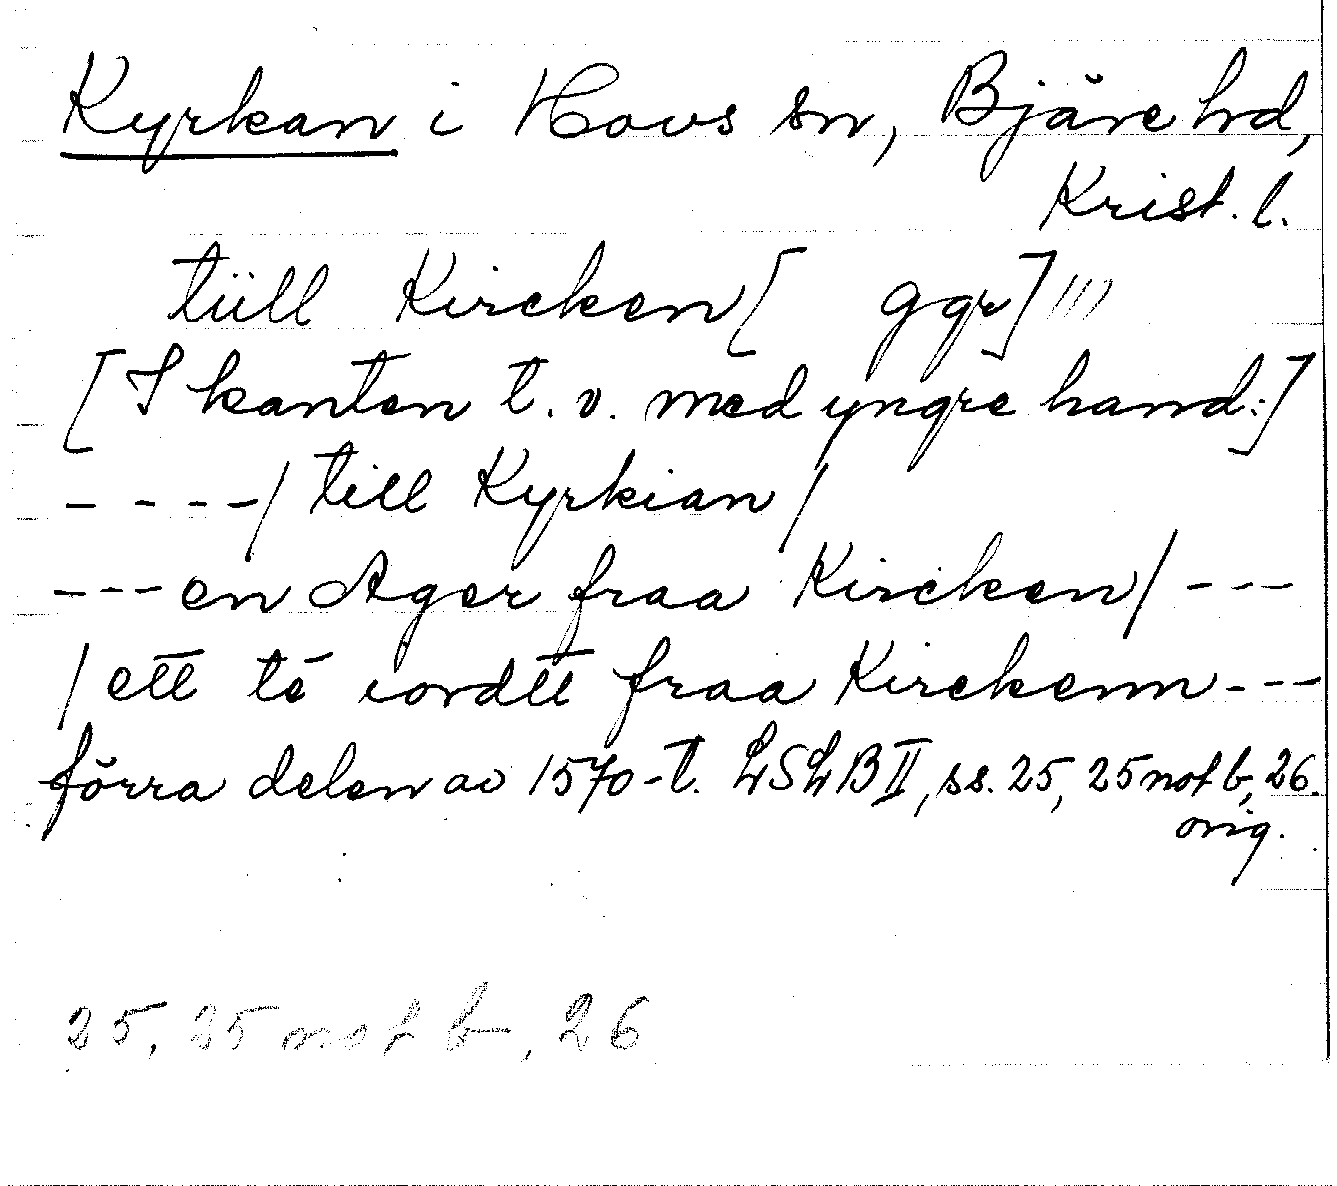 Kyrkan i Hovs sn, Bjäre hd,
Krist. l.
tüll Kircken [ ggr] ///
[I kanten t. v. med yngre hand:]
- - - -/ till Kyrkian /
--- en Ager fraa Kircken/ ---
/ ett té iordtt fraa Kirckenn ---
förra delen av 1570-t. LSLB II, ss. 25, 25 not b, 26.
orig.
25, 25 not b, 26